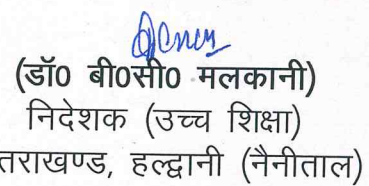 (डॉ0 बी0सी0 मलकानी)
निदेशक (उच्च शिक्षा)
तराखण्ड, हल्द्वानी (नैनीताल)